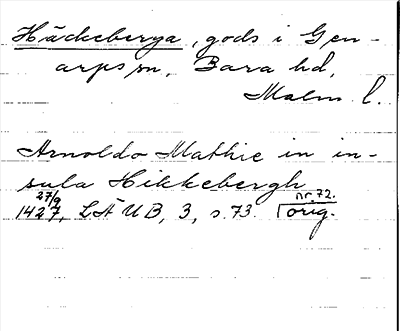 Häckeberga, gods i Gen-
arps sn, Bara hd,
Malm. l.
Arnoldo Mathie in in-
sula Hikkebergh
27/9 nr. 72.
1427, LÄUB, 3, s. 73. orig.